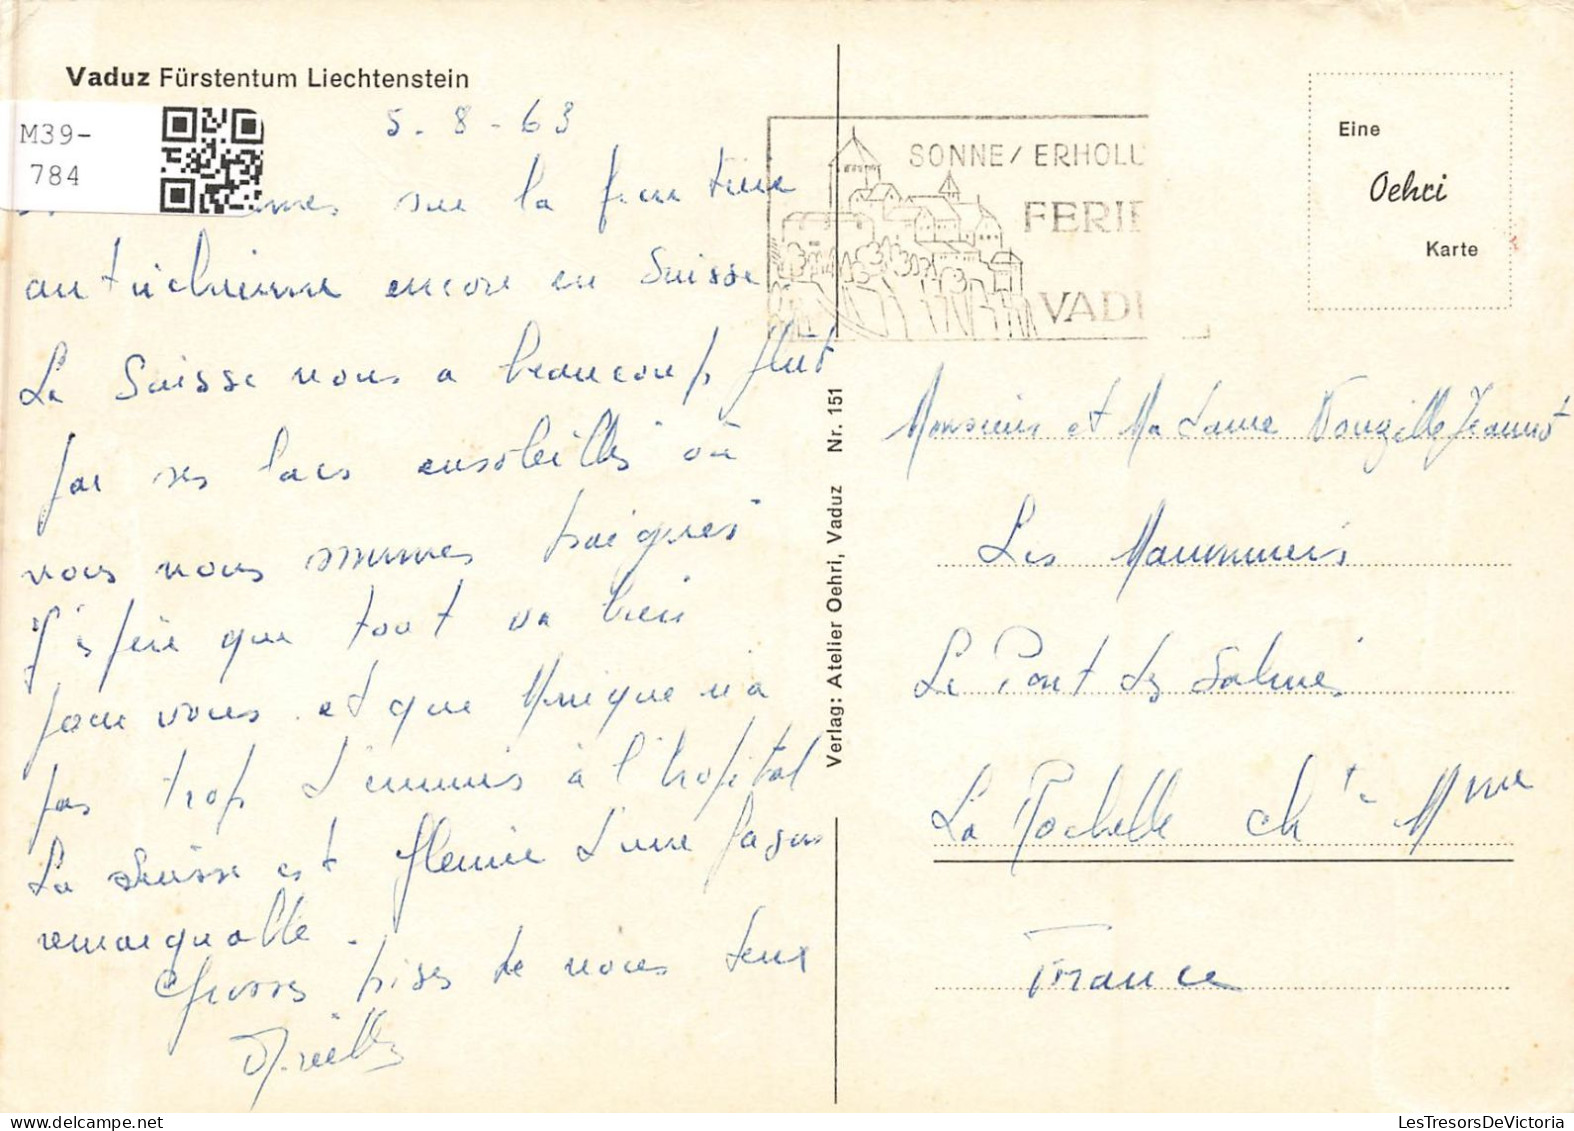 Vaduz Fürstentum Liechtenstein
M39-
784
5-8-63
sur la frontière
autrichienne encore en Suisse
La Suisse nous a beaucoup plut
par ses lacs ensoleillés où
nous nous sommes baignés
J'espère que tout va bien
pour vous et que Monique n'a
pas trop d'ennuis à l'hopital
La Suisse est fleurie d'une façon
remarquable.
Grosses bises de nous deux
SONNE/ ERHOLU
FERIE
VADU
Eine
Oehri
Karte
Verlag: Atelier Oehri, Vaduz Nr. 151
Monsieur et Madame Jeannot
Les
Le Pont des Salines
La Rochelle chte Mme
France
LesTresorsDeVictoria.com